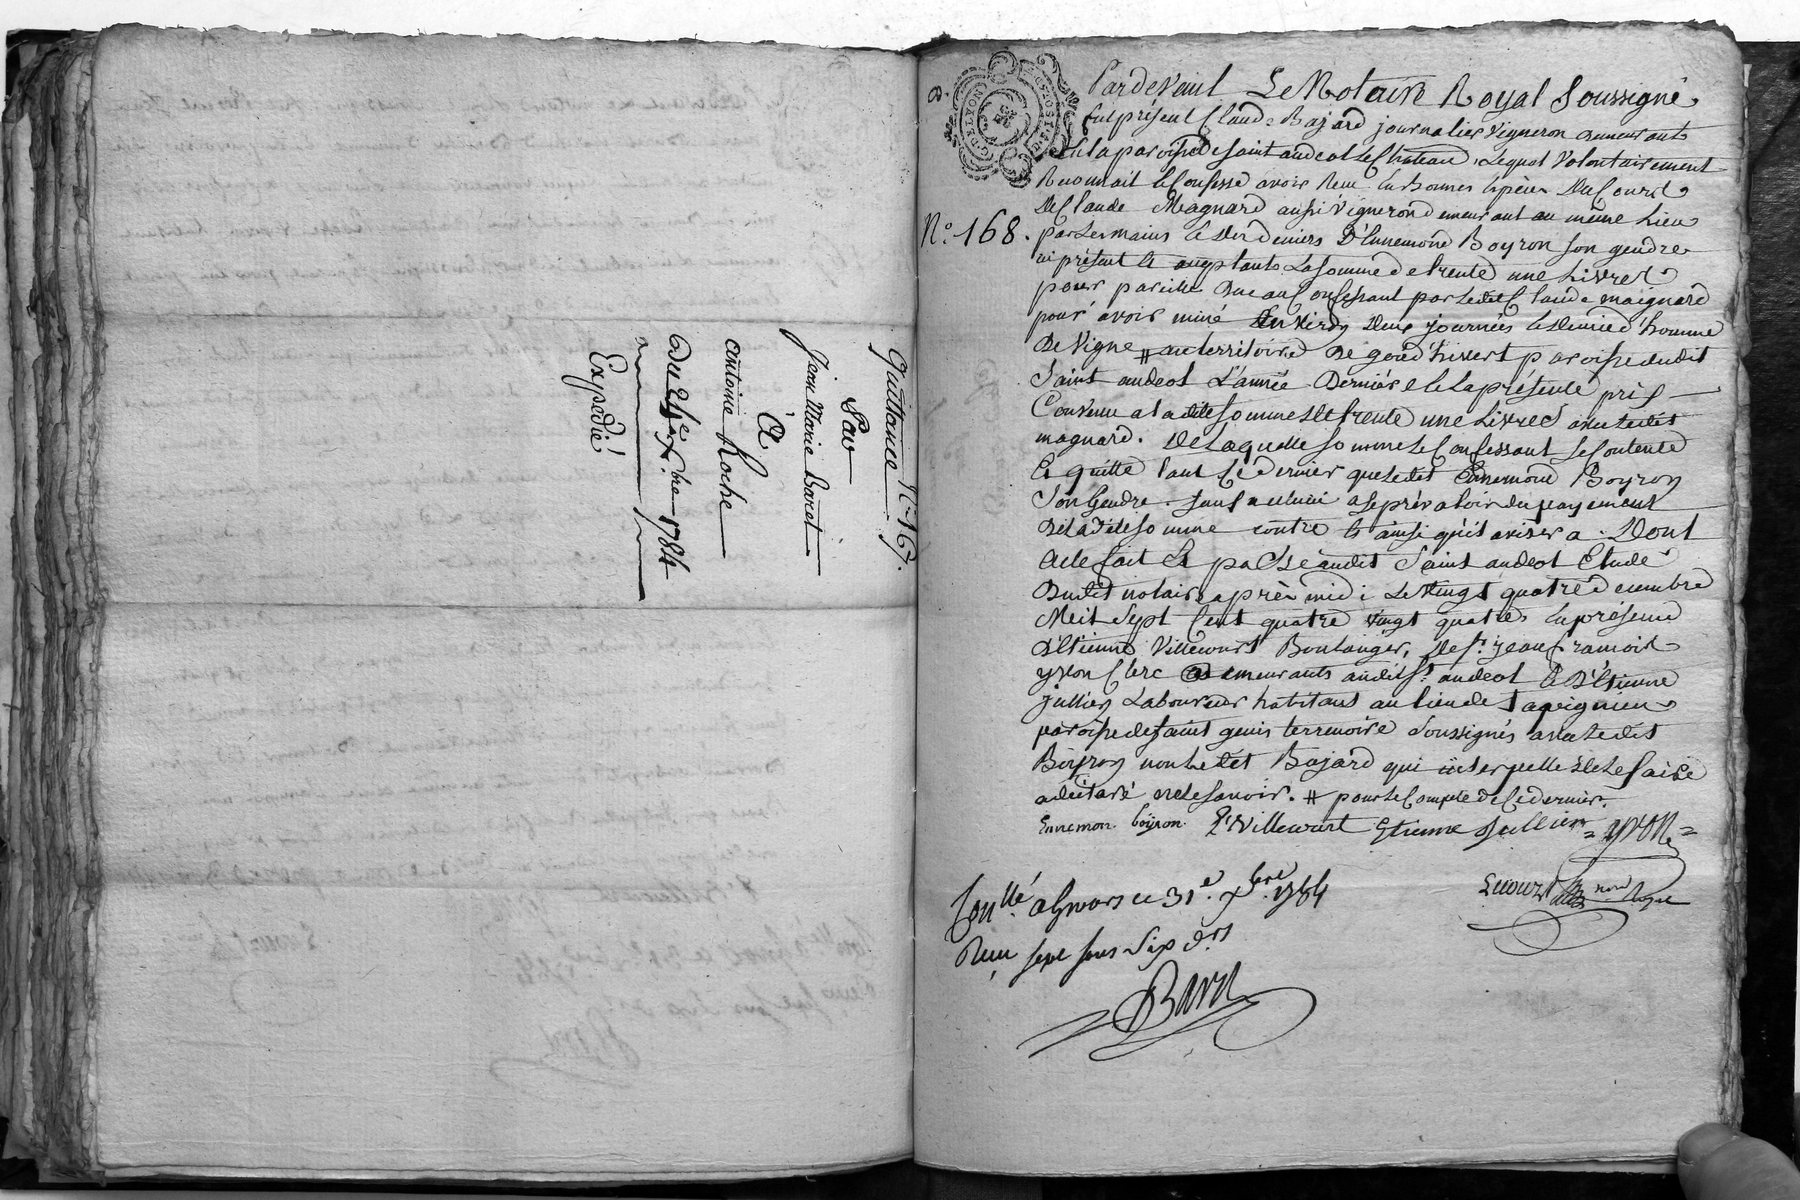 Quittance N.° 167.
Par
Jean Marie Baret
à
antoine Roche
Du 21e Xbre 1784
Expedié
G. DE LYON
Pardevant Le Notaire Royal Soussigné
fut présent Claude Bajard journalier vigneron demeurant
en la paroisse de saint andeol le Chateau, Lequel volontairement
Reconnait et Confesse avoir Reçu en bonnes Espèces De Cours
De Claude Magnard aussi vigneron demeurant au même Lieu
N.° 168.
par les mains et des deniers D'Ennemond Boyron son gendre
ici présent et acceptant La somme de trente une Livres
pour pareille Due au Confessant par ledit Claude maignard
pour avoir miné Environ Deux journées et Demie d'homme
De Vigne # au territoire De goud'hivert paroisse dudit
Saint andeol L'année Derniere et la présente prix
Convenu a la dite somme de trente une Livres avec ledit
magnard. De Laquelle somme le Confessant se Contente
Et quitte tant Ce dernier que ledit Ennemond Boyron
son Gendre. sauf a celuici a se prévaloir du payement
De la dite somme contre et ainsi qu'il avisera. Dont
acte fait Et passé audit Saint andeol Etude
Dudit notaire après midi Le vingt quatre decembre
Mil Sept Cent quatre vingt quatre En présence
d'Etienne Villecourt Boulanger, De sr. jean françois
yvon Clerc demeurants audit St. andeol & d'Etienne
jullien Laboureur habitant au lieu de
paroisse de saint genis terrenoire Soussignés avec ledit
Boyron non ledit Bajard qui interpellé De le faire
a déclaré ne le savoir. # pour le Compte de Ce dernier.
Ennemon boyron. Er Villecourt Etienne Jullien = YVON =
Lecourt nore Royal
Conllé a Givors ce 31e. Xbre. 1784
Reçu sept sous Six d.rs